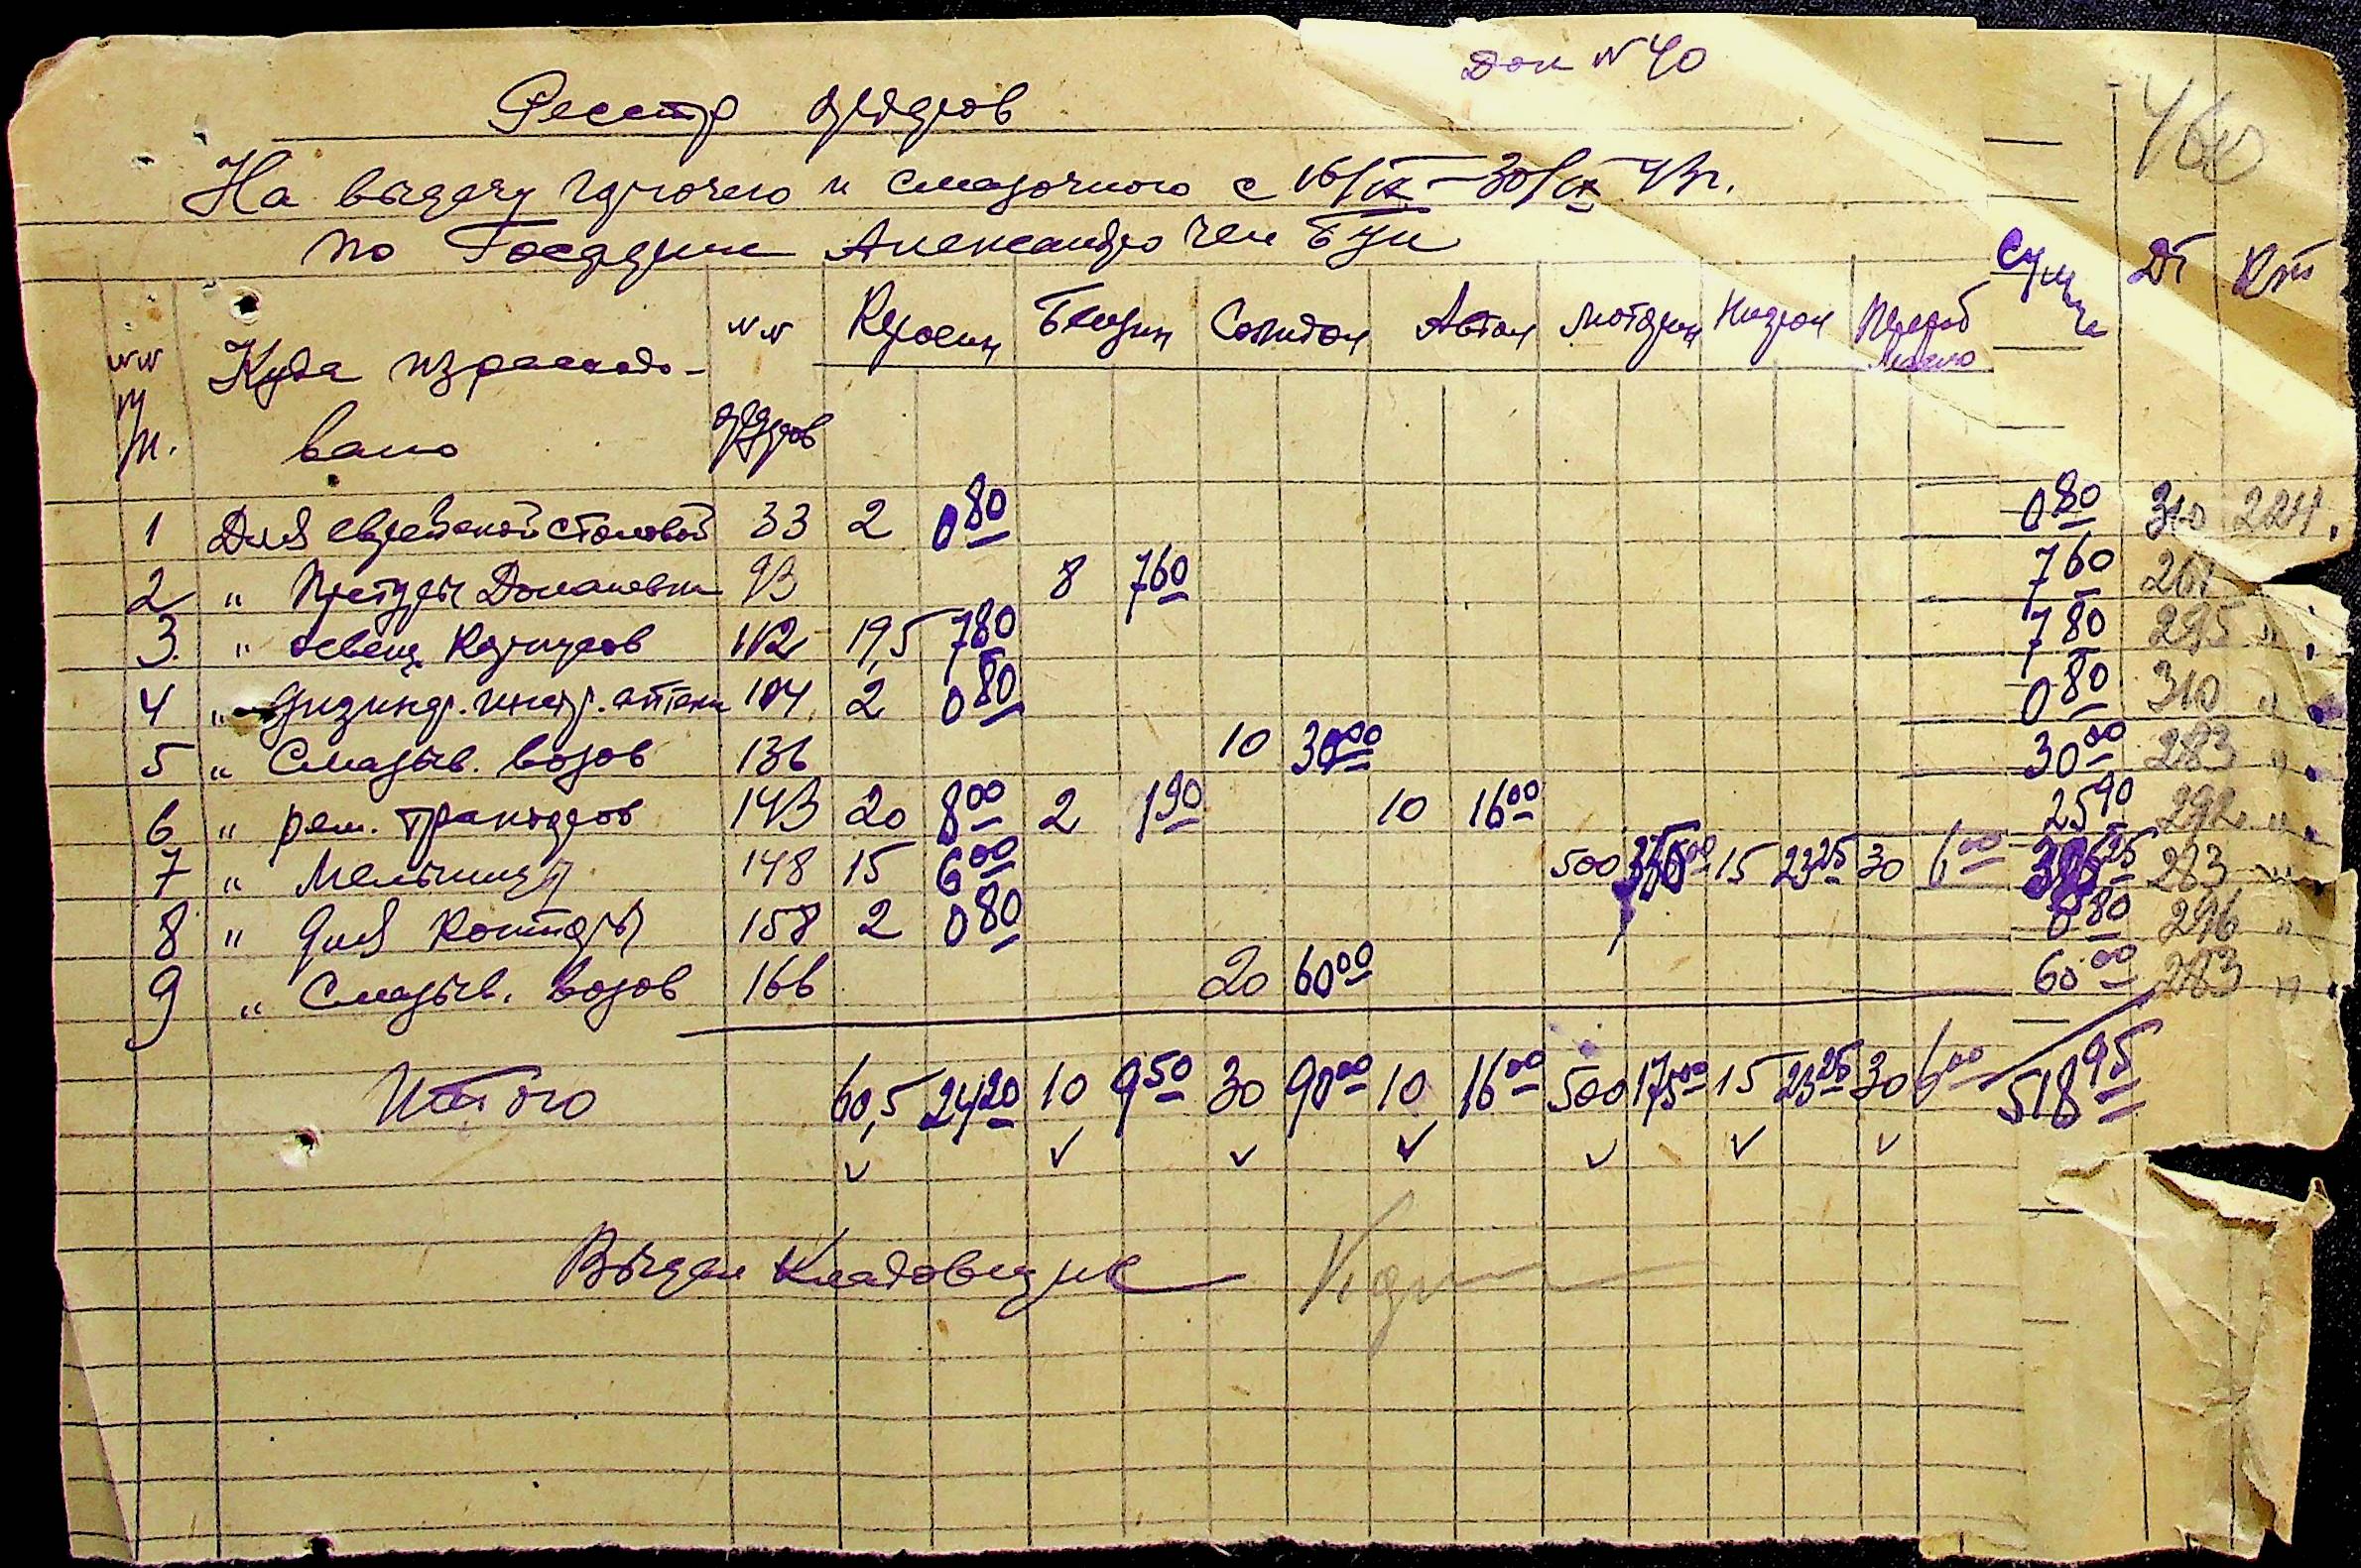 Док № 40
460
Реестр ордеров
На выдачу горючего и смазочного с 16/IX – 30/IX 43 г.
по Госдерж
№№ п/п. Куда израсходовано №№ ордеров Керосин Бензин Солидол Автол Моторин Нигрол Перераб масло Сумма Дт Кт
1 Для еврейской столовой 33 2 0 80 0 80 310 224
2 " Претуры Доманевки 93 8 7 60 7 60 261
3. " освещ. 112 19,5 7 80 7 80 295 "
4 " аптеки 104 2 0 80 0 80 310 "
5 " Смазыв. возов 136 10 30 00 30 00 283 "
6 " рем. тракторов 143 20 8 00 2 1 90 10 16 00 25 90 292 "
7 " Мельницу 148 15 6 00 500 15 23 25 30 6 00 283 "
8 " для Конторы 158 2 0 80 0 80 296 "
9 " Смазыв. возов 166 20 60 00 60 00 283 "
Итого 60,5 24 20 10 9 50 30 90 00 10 16 00 500 175 00 15 23 25 30 6 00 518 95
Выдал Кладовщик